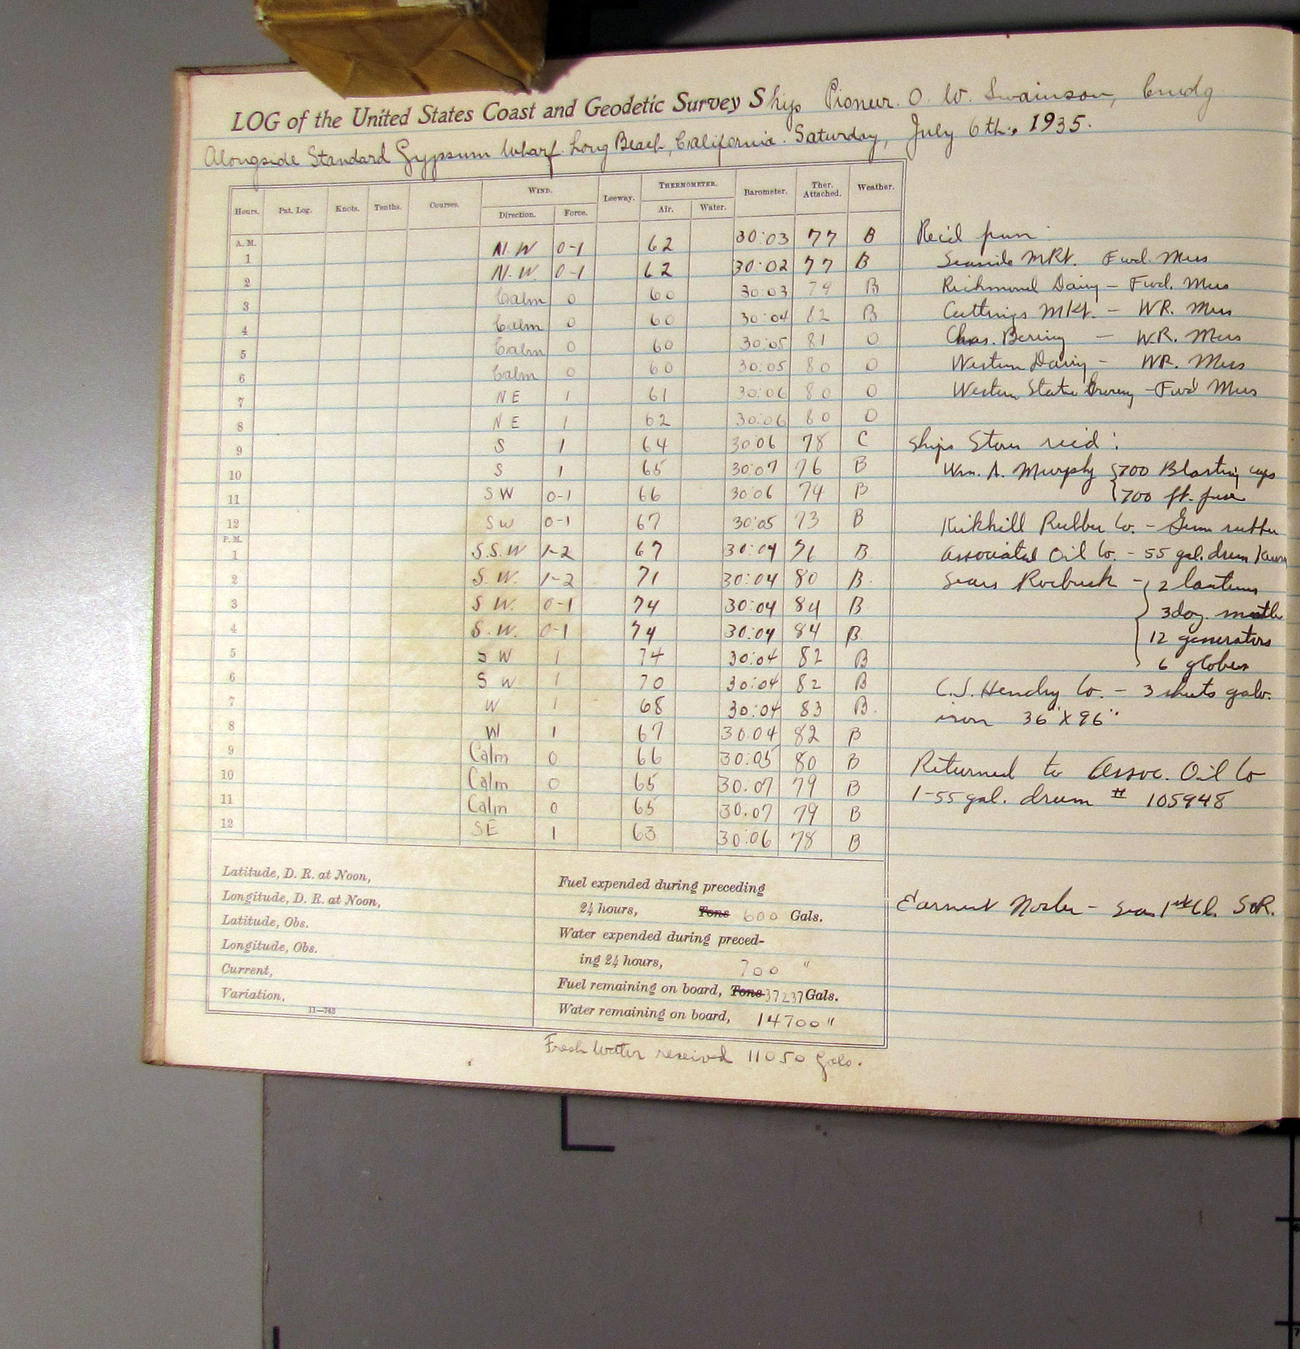 LOG of the United States Coast and Geodetic Survey Ship Pioneer. O. W. Swainson, Cmdg
Alongside Standard Gypsum Wharf. Long Beach, California. Saturday, July 6th, 1935.
Hours. Pat. Log. Knots. Tenths. Courses. WIND. Leeway. THERMOMETER. Barometer. Ther. Attached. Weather.
Direction. Force. Air. Water.
A. M.
1 N.W 0-1 62 30:03 77 B
2 N.W. 0-1 62 30:02 77 B
3 Calm 0 60 30:03 79 B
4 Calm 0 60 30:04 82 B
5 Calm 0 60 30:05 81 O
6 Calm 0 60 30:05 80 O
7 NE 1 61 30:06 80 O
8 NE 1 62 30:06 80 O
9 S 1 64 30 06 78 C
10 S 1 65 30:07 76 B
11 SW 0-1 66 30:06 74 B
12 SW 0-1 67 30:05 73 B
P. M.
1 S.S.W 1-2 67 30:04 76 B
2 S.W. 1-2 71 30:04 80 B.
3 S.W. 0-1 74 30:04 84 B
4 S.W. 0-1 74 30:04 84 B
5 SW 1 74 30:04 82 B
6 SW 1 70 30:04 82 B
7 W 1 68 30:04 83 B.
8 W 1 67 30.04 82 B
9 Calm 0 66 30:05 80 B
10 Calm 0 65 30.07 79 B
11 Calm 0 65 30.07 79 B
12 SE 1 63 30:06 78 B
Rec'd from
Seaside MKt. Fwd. Mess
Richmond Dairy - Fwd. Mess
Cuttings Mkt. - WR. Mess
Chas. Bering - WR. Mess
Western Dairy - WR. Mess
Western States Grocery - Fwd Mess
Ships Stores rec'd:
Wm. A. Murphy 700 Blasting caps
700 ft. fuse
Kirkhill Rubber Co. - Gum rubber
Associated Oil Co. - 55 gal. drum
Sears Roebuck - 2 lanterns
3 doz. mantles
12 generators
6 globes
C.J. Hendry Co. - 3 sheets galv.
iron 36"X96"
Returned to Assoc. Oil Co
1-55 gal. drum # 105948
Earnest - Sea. 1st Cl.
Latitude, D. R. at Noon,
Longitude, D. R. at Noon,
Latitude, Obs.
Longitude, Obs.
Current,
Variation,
11—743
Fuel expended during preceding
24 hours, Tons 600 Gals.
Water expended during preced-
ing 24 hours, 700 "
Fuel remaining on board, Tons 37237 Gals.
Water remaining on board, 14700 "
Fresh Water received 11050 Gals.